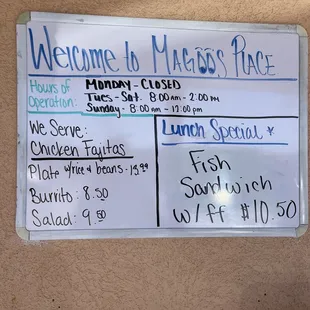 Welcome to MAGOO'S PLACE
Hours of Operation:
MONDAY - CLOSED
Tues - Sat. 8:00 AM - 2:00 PM
Sunday - 8:00 AM - 12:00 PM
We Serve:
Chicken Fajitas
Plate w/rice & beans -
Burrito: 8.50
Salad: 9.50
Lunch Special *
Fish
Sandwich
w/ff $10.50